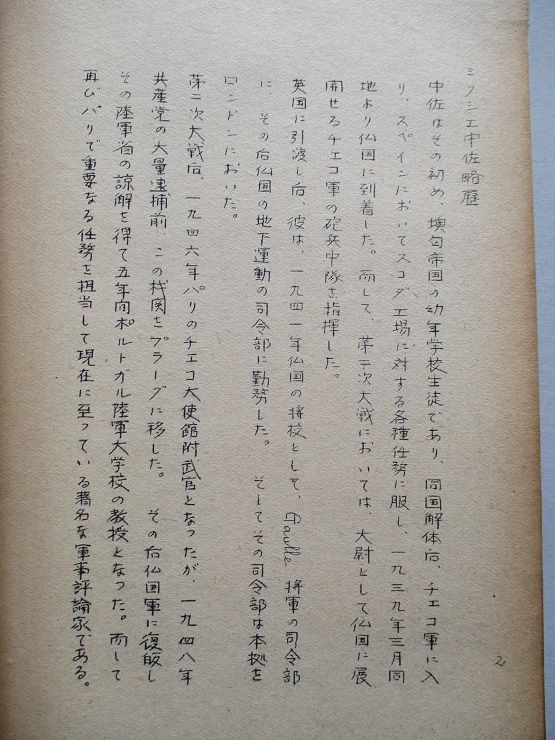 ミクシエ中佐略歴
中佐はその初め、墺匈帝国の幼年学校生徒であり、同国解体后、チェコ軍に入
り、スペインにおいてスコダ工場に対する各種任務に服し、一九三九年三月同
地より仏国に到着した。而して、第二次大戦においては、大尉として仏国に展
開せるチェコ軍の砲兵中隊を指揮した。
英国に引渡し后、彼は、一九四一年仏国の将校として、Gaulle 将軍の司令部
に、その后仏国の地下運動の司令部に勤務した。 そしてその司令部は本拠を
ロンドンにおいた。
第二次大戦后、一九四六年パリのチェコ大使館附武官となったが、一九四八年
共産党の大量逮捕前、この機関をプラーグに移した。 その后仏国軍に復皈し
その陸軍省の諒解を得て五年间ポルトガル陸軍大学校の教授となった。而して
再びパリで重要なる任務を担当して現在に至っている著名な軍事評論家である。
2